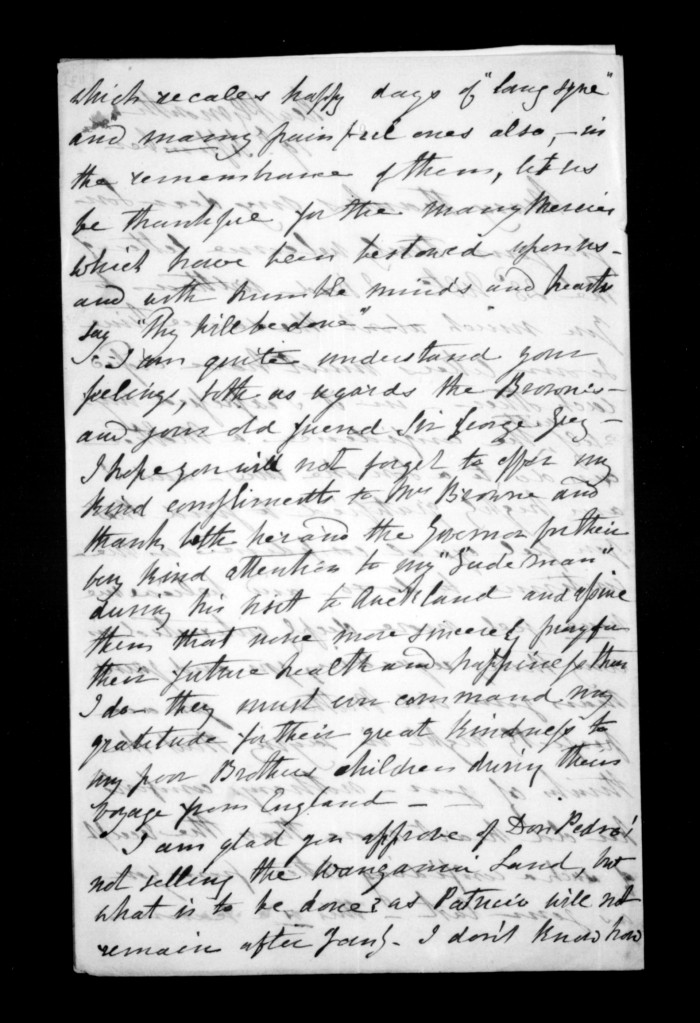 which recales happy days of "lang syne"
and many painful ones also, - in
the remembrance of them, let us
be thankful for the many mercies
which have been bestowed upon us -
and with humble minds and hearts
say "Thy will be done" -
I can quite understand your
feelings, both as regards the Browne's -
and your old friend Sir George Grey -
I hope you will not forget to offer my
kind compliments to Mrs Browne and
thank both her and the Governor for their
very kind attention to my "Gude man"
during his visit to Auckland and assure
them that none more sincerely pray for
their future health and happiness than
I do - they must ever command my
gratitude for their great kindness to
my poor Brothers children during their
voyage from England -
I am glad you approve of Don Pedro's
not selling the Wanganui Land, but
what is to be done? as Patricio will not
remain after Jany. - I don't know how